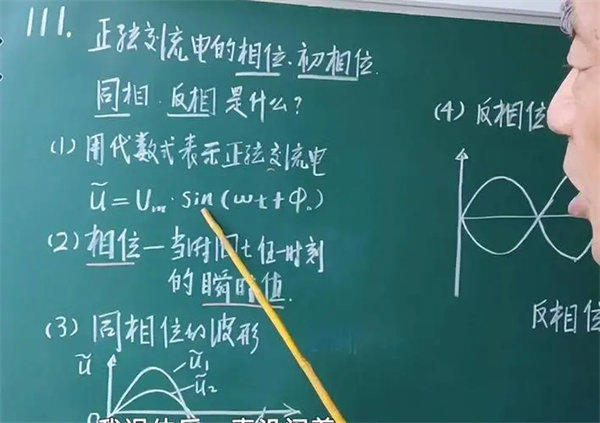 111. 正弦交流电的相位、初相位、
同相、反相是什么?
(1) 用代数式表示正弦交流电
ũ = Um · sin(ωt + φ₀)
(2) 相位—当时间t任一时刻
的瞬时值.
(3) 同相位的波形
ũ
ũ₁
ũ₂
0
(4) 反相位
反相位